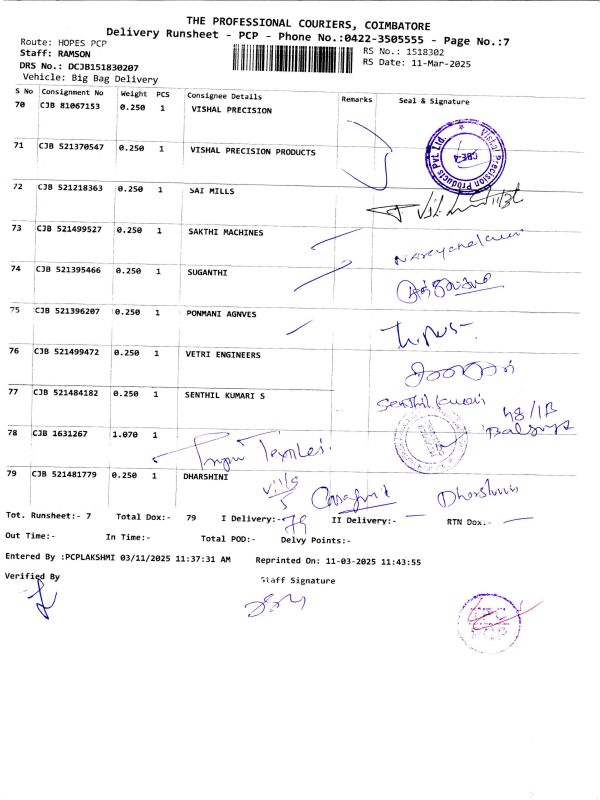 THE PROFESSIONAL COURIERS, COIMBATORE
Delivery Runsheet - PCP - Phone No.:0422-3505555 - Page No.:7
Route: HOPES PCP
RS No.: 1518302
Staff: RAMSON
RS Date: 11-Mar-2025
DRS No.: DCJB151830207
Vehicle: Big Bag Delivery
S No Consignment No Weight PCS Consignee Details Remarks Seal & Signature
70 CJB 81067153 0.250 1 VISHAL PRECISION
71 CJB 521370547 0.250 1 VISHAL PRECISION PRODUCTS
Vishal Precision Products Pvt Ltd.
CBE-4
72 CJB 521218363 0.250 1 SAI MILLS
73 CJB 521499527 0.250 1 SAKTHI MACHINES
74 CJB 521395466 0.250 1 SUGANTHI
75 CJB 521396207 0.250 1 PONMANI AGNVES
76 CJB 521499472 0.250 1 VETRI ENGINEERS
77 CJB 521484182 0.250 1 SENTHIL KUMARI S
Senthil Kumari
48/1B
78 CJB 1631267 1.070 1
Textiles.
79 CJB 521481779 0.250 1 DHARSHINI
Dharshini
Tot. Runsheet:- 7 Total Dox:- 79 I Delivery:- 79 II Delivery:- — RTN Dox:- —
Out Time:- In Time:- Total POD:- Delvy Points:-
Entered By :PCPLAKSHMI 03/11/2025 11:37:31 AM Reprinted On: 11-03-2025 11:43:55
Verified By Staff Signature